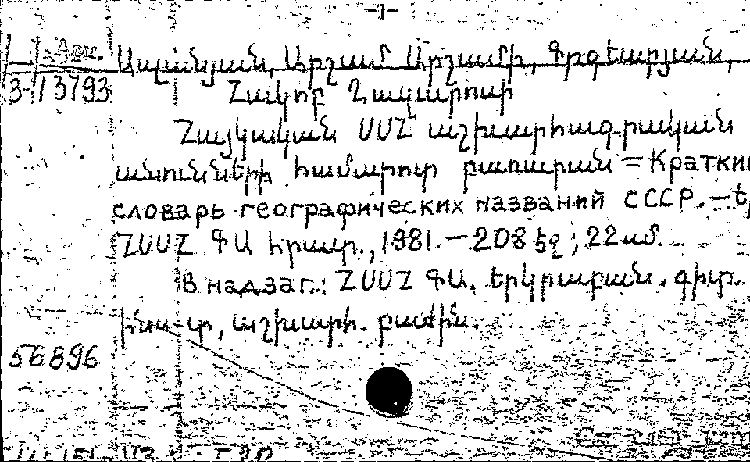 -1-
Ասլանյան, Արշամ Արշամի, Գրգեարյան,
3-13793 Հակոբ Ղազարոսի
Հայկական ՍՍՀ աշխարհագրական
անունների համառոտ բառարան = Краткий
словарь географических названий СССР. -
ՀՍՍՀ ԳԱ հրատ., 1981. - 208 էջ; 22 սմ.
В надзаг.: ՀՍՍՀ ԳԱ. երկրաբան. գիտ.
ինս-տ, աշխարհ. բաժին.
56896